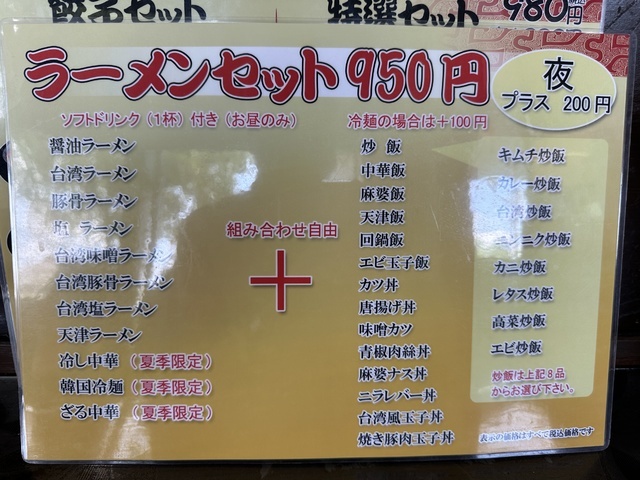 餃子セット
特選セット 980円
ラーメンセット 950円
夜
プラス 200円
ソフトドリンク（1杯）付き（お昼のみ）
冷麺の場合は＋100円
醤油ラーメン
台湾ラーメン
豚骨ラーメン
塩 ラーメン
台湾味噌ラーメン
台湾豚骨ラーメン
台湾塩ラーメン
天津ラーメン
冷し中華（夏季限定）
韓国冷麺（夏季限定）
ざる中華（夏季限定）
組み合わせ自由
＋
炒 飯
中華飯
麻婆飯
天津飯
回鍋飯
エビ玉子飯
カツ丼
唐揚げ丼
味噌カツ
青椒肉絲丼
麻婆ナス丼
ニラレバー丼
台湾風玉子丼
焼き豚肉玉子丼
キムチ炒飯
カレー炒飯
台湾炒飯
ニンニク炒飯
カニ炒飯
レタス炒飯
高菜炒飯
エビ炒飯
炒飯は上記8品
からお選び下さい。
表示の価格はすべて税込価格です